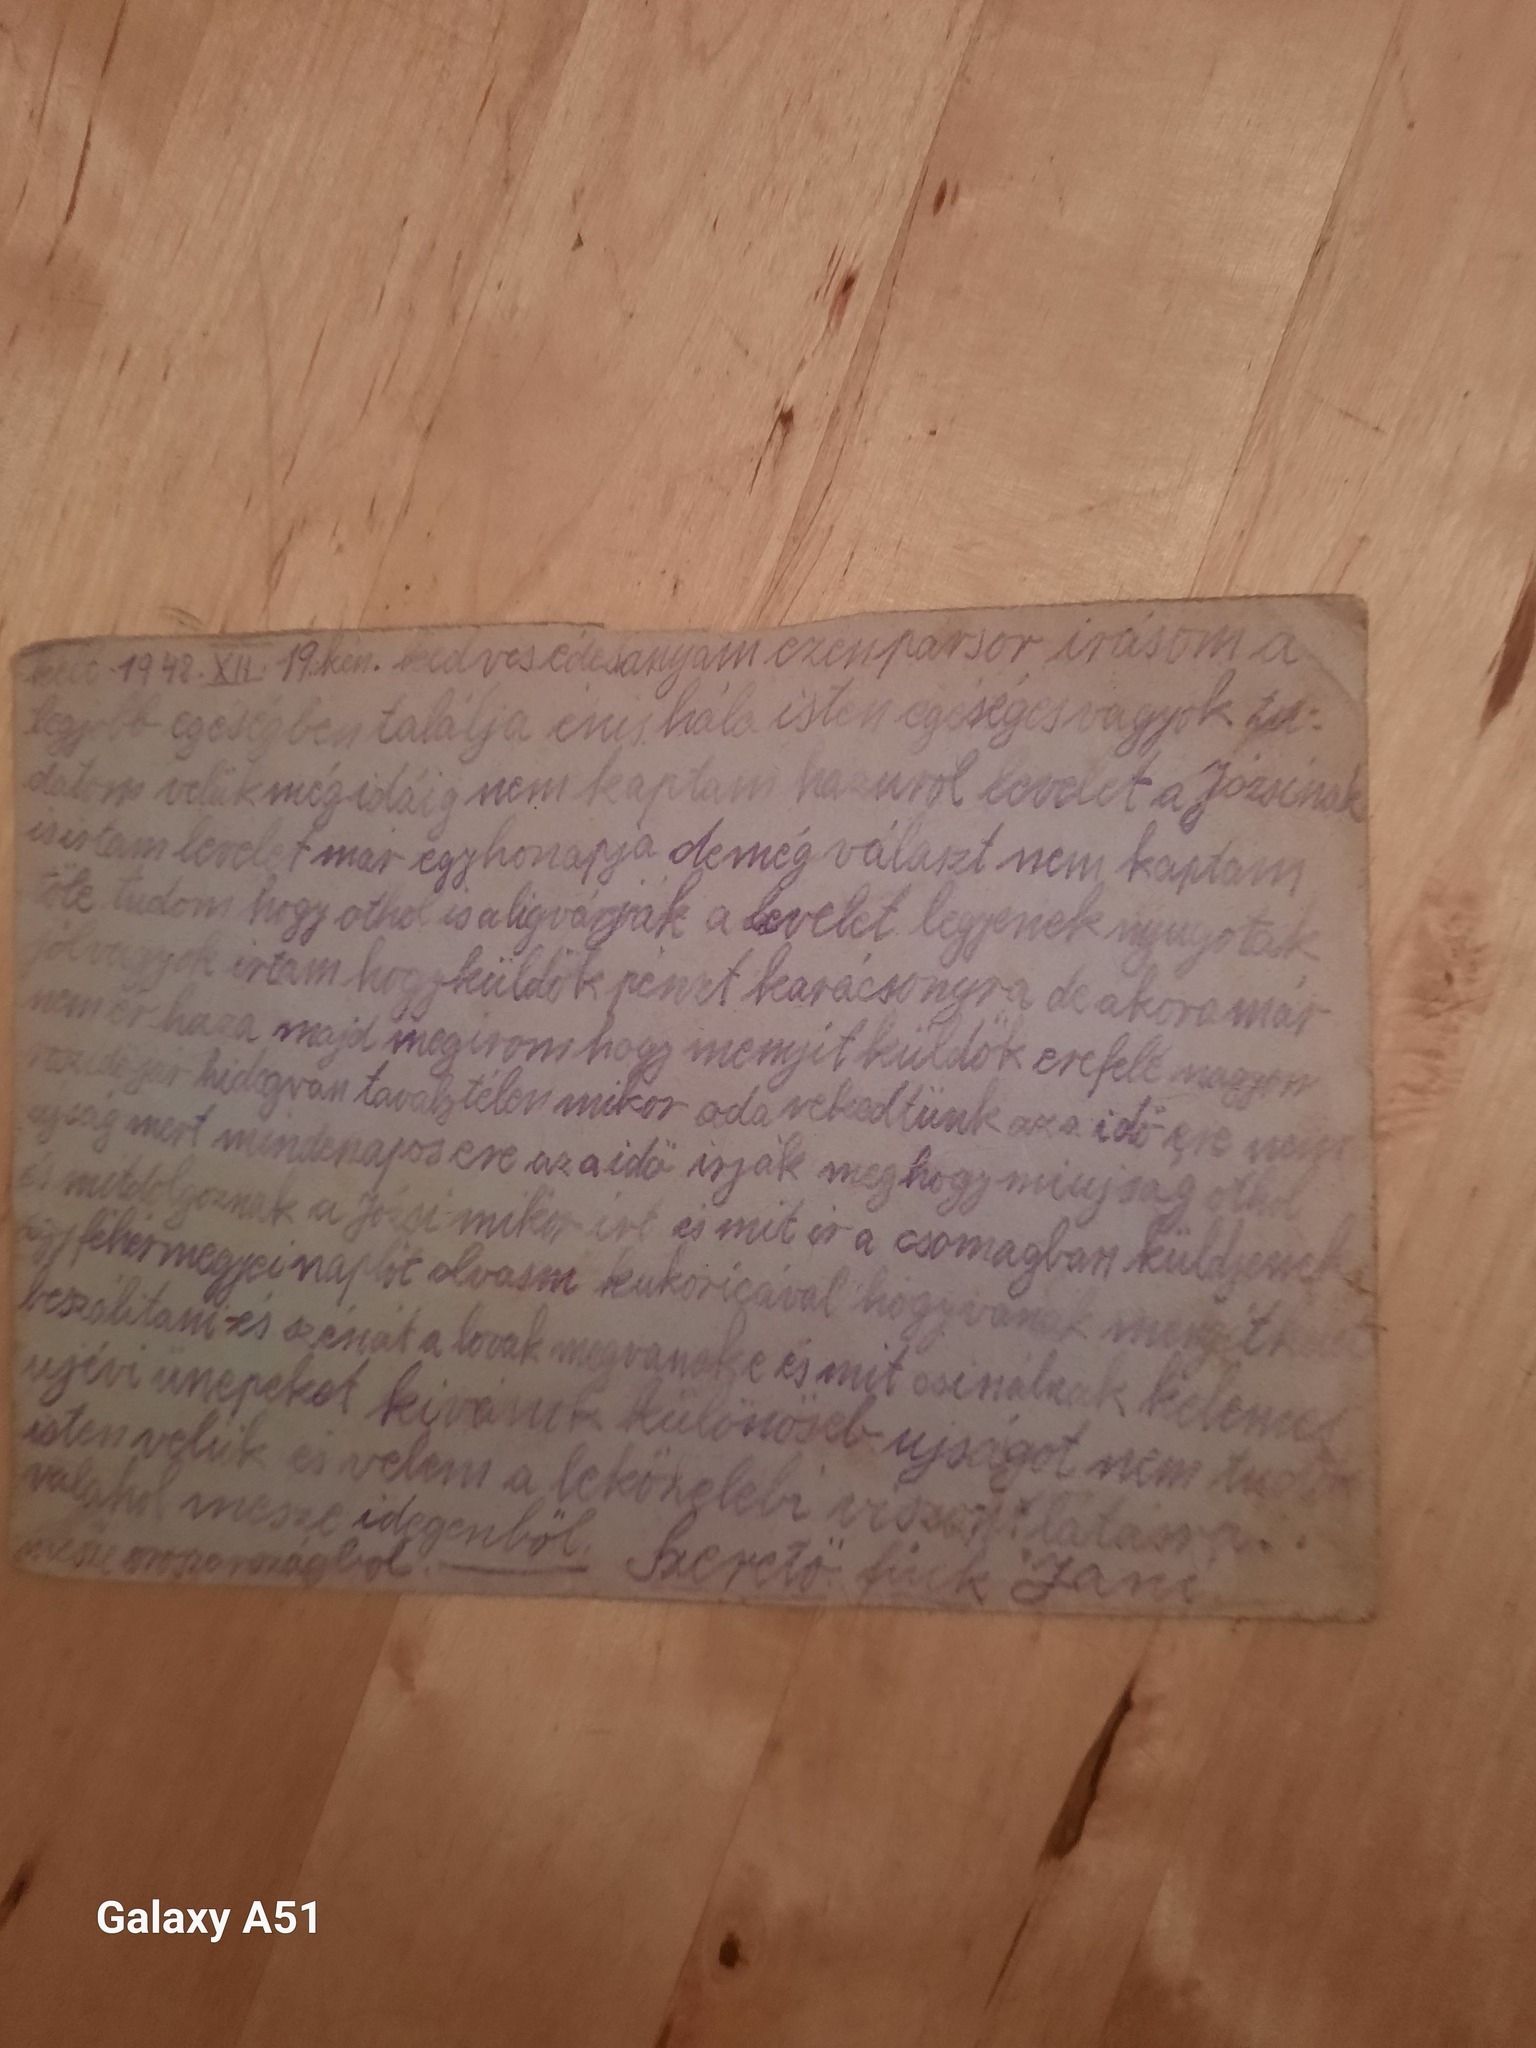 kelt 1942. XII. 19.ken. kedves édesanyám ezen pársor irásom a
legjobb egéségben találja énis hála isten egéséges vagyok tu-
datom velük mégidáig nem kaptam hazuról levelet a Józsinak
isirtam levelet már egyhonapja demég választ nem kaptam
töle tudom hogy othol is aligvárják a levelet legyenek nyugotak
jólvagyok irtam hogyküldök pénzt karácsonyra de akora már
nem ér haza majd megirom hogy menyit küldök erefelé nagyon
roszidöjár hidegvan tavalytélen mikor oda vetedtünk aza idö ere nem
ujság mert mindenapos ere azaidö irják meghogy miujság othol
és mitdolgoznak a Józsi mikor irt és mit ir a csomagban küldjenek
egy féhérmegyei naplót olvasni kukoricával hogyvanak menyit
beszálitani és szénát a lovak megvanake és mit csinálnak kelemes
ujévi ünepeket kivánok különöseb ujságot nem tudok
isten velük és velem a leközelebi viszontlátásra..
valahol mesze idegenböl. Szeretö fiuk Jani
mesze oroszországbol.
Galaxy A51